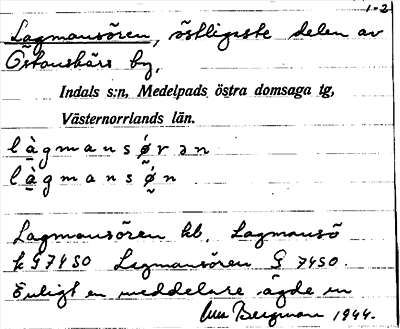 1-2
Lagmansören, östligaste delen av
Östanskärs by,
Indals s:n, Medelpads östra domsaga tg,
Västernorrlands län.
làgmansǿrən
làgmansǿ̰n
Lagmansören kb. Lagmansö
k G7450 Lagmansören G 7450.
Enligt en meddelare ägde en
Bergman 1944.